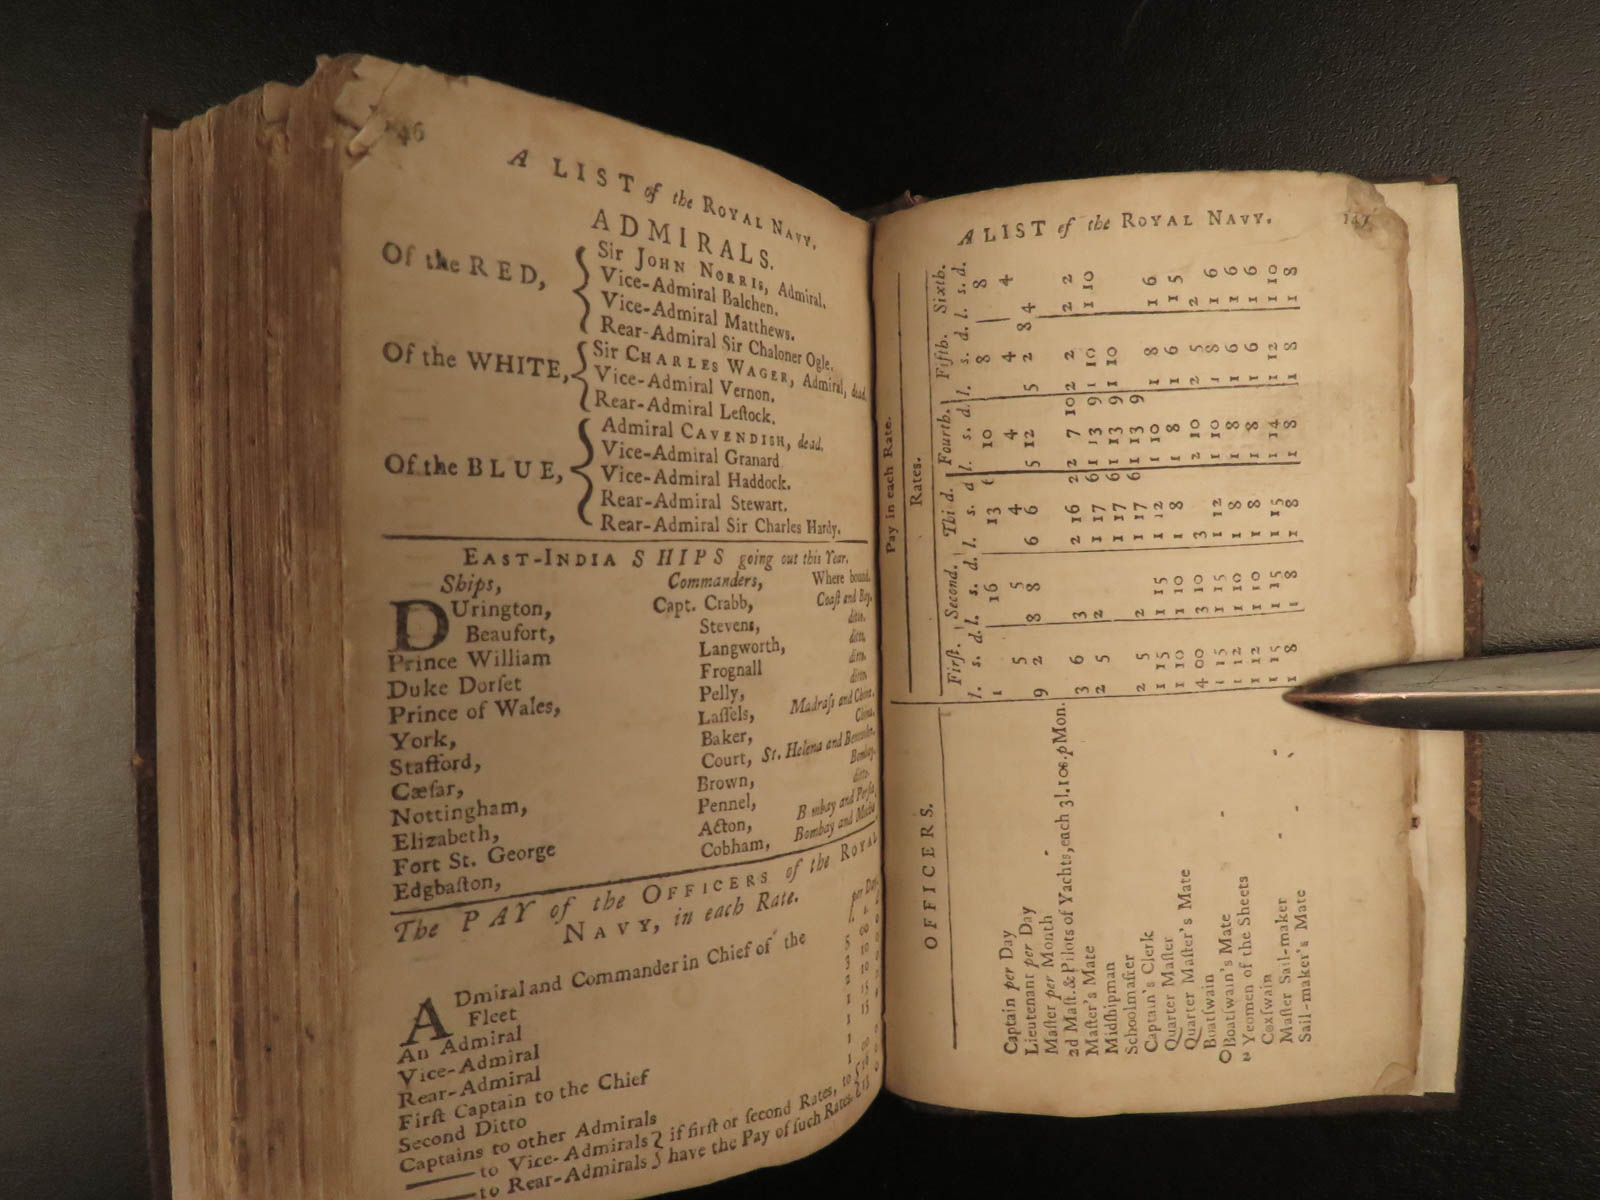 A LIST of the ROYAL NAVY.
ADMIRALS.
Of the RED,
Sir JOHN NORRIS, Admiral.
Vice-Admiral Balchen.
Vice-Admiral Matthews.
Rear-Admiral Sir Chaloner Ogle.
Of the WHITE,
Sir CHARLES WAGER, Admiral, dead.
Vice-Admiral Vernon.
Rear-Admiral Leſtock.
Of the BLUE,
Admiral CAVENDISH, dead.
Vice-Admiral Granard
Vice-Admiral Haddock.
Rear-Admiral Stewart.
Rear-Admiral Sir Charles Hardy.
EAST-INDIA SHIPS going out this Year.
Ships, Commanders, Where bound.
DUrington, Capt. Crabb, Coaſt and Bay.
Beaufort, Stevens, ditto.
Prince William Langworth, ditto.
Duke Dorſet Frognall ditto.
Prince of Wales, Pelly, ditto
York, Laſſels, Madraſs and China.
Stafford, Baker, China.
Cæſar, Court, St. Helena and
Nottingham, Brown, Bombay.
Elizabeth, Pennel, ditto.
Fort St. George Acton, Bombay and Perſia
Edgbaſton, Cobham, Bombay and
The PAY of the OFFICERS of the ROYAL
NAVY, in each Rate.
per Day.
ADmiral and Commander in Chief of the
Fleet
An Admiral
Vice-Admiral
Rear-Admiral
Firſt Captain to the Chief
Second Ditto
Captains to other Admirals
to Vice-Admirals } if firſt or ſecond Rates, to
to Rear-Admirals } have the Pay of ſuch Rates.
A LIST of the ROYAL NAVY.
Pay in each Rate.
Rates.
OFFICERS.
Firſt. Second. Third. Fourth. Fifth. Sixth.
l. s. d. l. s. d. l. s. d. l. s. d. l. s. d. l. s. d.
Captain per Day 1 16 13 6 10 8 8
Lieutenant per Day 5 5 4 4 4 4
Master per Month 9 2 8 8 6 6 5 12 5 2 8 4
2d Maſt.&Pilots of Yachts,each 3l.10s.p Mon.
Maſter's Mate 3 6 3 2 16 2 2 7 10 2 2 2 2
Midſhipman 2 5 2 1 17 6 1 13 9 1 10 1 10
Schoolmaſter
Captain's Clerk 2 5 2 1 17 6 1 13 9
Quarter Maſter 1 15 1 15 1 12 1 10 1 8 1 6
Quarter Maſter's Mate 1 10 1 10 1 8 1 8 1 6 1 5
Boatſwain 4 00 3 10 3 2 10 2 5 2
Boatſwain's Mate 1 15 1 15 1 12 1 10 1 8 1 6
Yeomen of the Sheets 1 12 1 10 1 8 1 8 1 6 1 6
Coxſwain 1 12 1 10 1 8 1 8 1 6 1 6
Maſter Sail-maker 1 15 1 15 1 15 1 14 1 12 1 10
Sail-maker's Mate 1 8 1 8 1 8 1 8 1 8 1 8